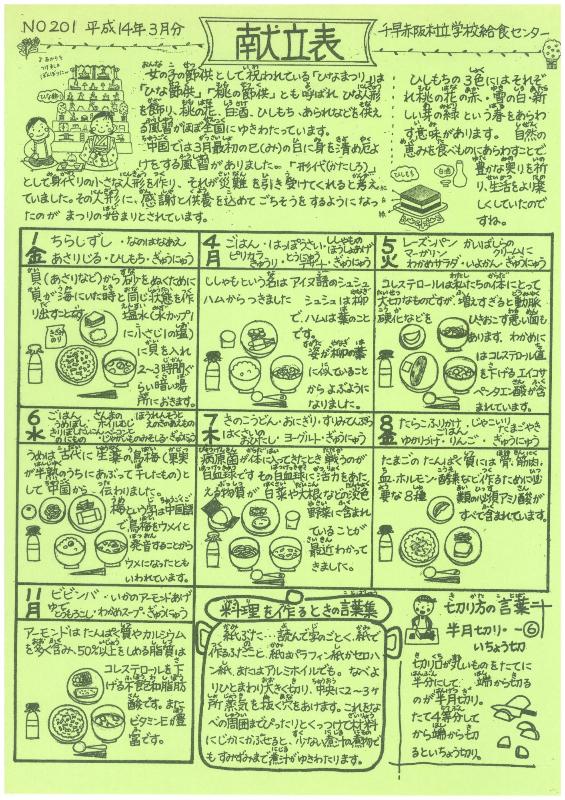 NO201 平成14年3月分
献立表
千早赤阪村立学校給食センター
女の子の節供として祝われている「ひなまつり」は
「ひな節供」「桃の節供」とも呼ばれ ひな人形
を飾り、桃の花、白酒、ひしもち、あられなどを供え
る風習がほぼ全国にゆきわたっています。
中国では3月最初の巳(み)の日に身を清め厄よ
けをする風習がありました。「形代(かたしろ)」
として身代りの小さな人形を作り、それが災難を引き受けてくれると考え
ていました。その人形に、感謝と供養を込めてごちそうをするようになっ
たのが まつりの始まりとされています。
ひしもちの3色にはそれぞ
れ桃の花の赤・雪の白・新
しい芽の緑という春をあらわ
す意味があります。自然の
恵みを食べものにあらわすことで
豊かな実りを祈
り、生活をより楽
しくしていたので
すね。
ひしもち
白酒
1
金
ちらしずし・なのはなあえ
あさりじる・ひしもち・ぎゅうにゅう
貝(あさりなど)から砂をぬくために
貝が海にいた時と同じ状態を作
ります
塩水(水カップ1
に小さじ1の塩)
に貝を入れ
2~3時間ぐ
らい暗い場
所におきます。
4
月
ごはん・はっぽうさい・ししゃもの
ししゃもという名はアイヌ語のシュシュ
ハムからつきました シュシュは柳
で、ハムは葉のこと
です。
姿が柳の葉
に似ていること
からよぶように
なりました。
5
火
レーズンパン かいばしらの
マーガリン クリームに
わかめサラダ・いよかん・ぎゅうにゅう
コレステロールは私たちの体にとって
大切なものですが、増えすぎると動脈
硬化などを ひきおこす悪い面も
あります。わかめに
はコレステロール値
を下げるエイコサ
ペンタエン酸が含
まれています。
6
水
ごはん さんまの ほうれんそうと
うめは古代に生薬の烏梅(果実
が半熟のうちにあぶって干したもの)と
して中国から、伝わりました。
梅という字は中国語
で烏梅をウメイと
発音することから
ウメになったとも
いわれています。
7
木
きのこうどん・おにぎり・すりみてんぷら
はくさいの
おひたし・ヨーグルト・ぎゅうにゅう
病原菌が体に入ってきたとき戦うのが
白血球です その白血球に活力をあた
える物質が、白菜や大根などの淡色
野菜に含まれ
ていることが
最近わかって
きました。
8
金
たらこふりかけ じゃこいり たまごやき
ごはん
ゆかりづけ・りんご・ぎゅうにゅう
たまごのたんぱく質には骨・筋肉・
血・ホルモン・酵素など作るために必
要な8種 類の必須アミノ酸が
すべて含まれています。
11
月
ビビンバ・いかのアーモンドあげ
ゆで
とうもろこし・わかめスープ・ぎゅうにゅう
アーモンドはたんぱく質やカルシウム
を多く含み、50%以上をしめる脂質は
コレステロールを下
げる不飽和脂肪
酸です。また
ビタミンEが豊
富です。
料理を作るときの言葉集
紙ぶた…読んで字のごとく、紙で
作るふたこと、紙はパラフィン紙かセロハ
ン紙、またはアルミホイルでも。なべよ
りひとまわり大きく切り、中央に2~3ヶ
所蒸気を抜く穴をあけます。これをな
べの周囲までぴったりとくっつけて材料
にじかにかぶせると、少ない煮汁の煮物で
もすみずみまで煮汁がゆきわたります。
切り方の言葉
半月切り・
いちょう切り ⑥
切り口が丸いものをたてに
半分にして 端から切る
のが半月切り。
たて4等分して
から端から切
るといちょう切り。